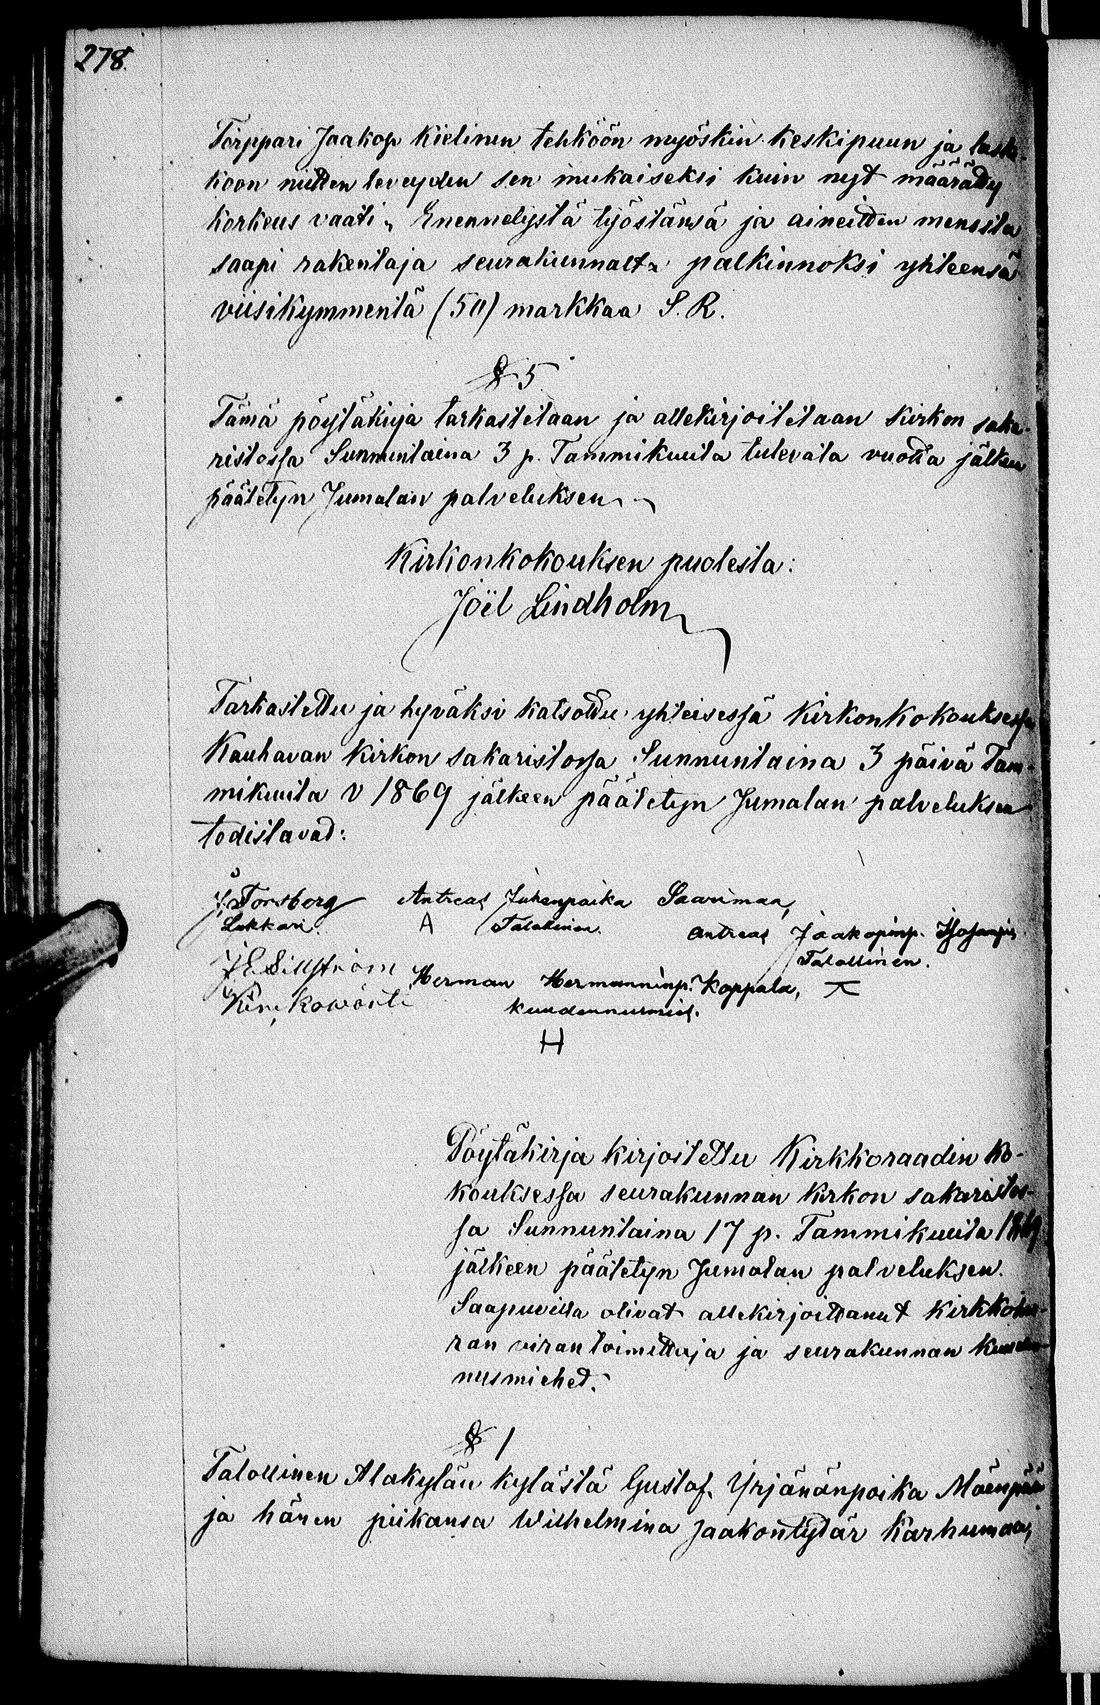 278.
Torppari Jaakop Kielinen tehköön myöskin keskipuun ja laske-
koon niitten leveyden sen mukaiseksi kuin nyt määrätty
korkeus vaati. Enennetystä työstänsä ja aineitten menosta
saapi rakentaja seurakunnalta palkinnoksi yhteensä
viisikymmentä (50) markkaa S. R.
§ 5
Tämä pöytäkirja tarkastetaan ja allekirjoitetaan kirkon saka-
ristossa Sunnuntaina 3 p. Tammikuuta tulevata vuotta jälkeen
päätetyn Jumalan palveluksen.
Kirkonkokouksen puolesta:
Joël Lindholm
Tarkastettu ja hyväksi katsottu yhteisessä Kirkonkokouksessa
Kauhavan Kirkon sakaristossa Sunnuntaina 3 päivä Tam-
mikuuta v 1869 jälkeen päätetyn Jumalan palveluksen
todistavad:
J. Forsberg Antreas Juhanpoika Saarimaa,
Lukkari. A Talollinen. Antreas Jaakopinp.
Talollinen.
J E Sillström Herman Hermanninp. Koppala,
kuudennusmies.
H
Pöytäkirja kirjoitettu Kirkkoraadin ko-
kouksessa seurakunnan kirkon sakaristos-
sa Sunnuntaina 17 p. Tammikuuta 1869
jälkeen päätetyn Jumalan palveluksen.
Saapuvilla olivat allekirjoittanut Kirkkoher-
ran virantoimittaja ja seurakunnan kuuden-
nusmiehet.
§ 1
Talollinen Alakylän kylästä Gustaf Yrjänänpoika Mäenpää
ja hänen piikansa Wilhelmina Jaakontytär Karhumaa,